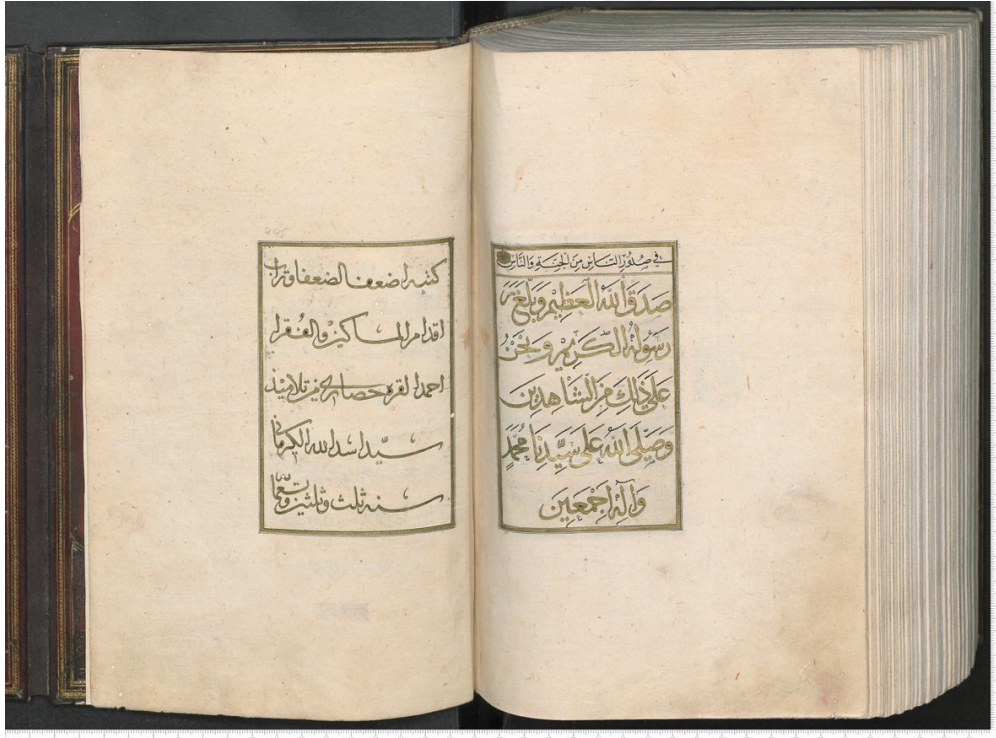 في صُدُورِ النَّاسِ مِنَ الْجِنَّةِ وَالنَّاسِ
صَدَقَ اللّٰهُ الْعَظِيْمُ وَبَلَّغَ
رَسُولُهُ الْكَرِيْمُ وَنَحْنُ
عَلَى ذٰلِكَ مِنَ الشَّاهِدِيْنَ
وَصَلَّى اللّٰهُ عَلَى سَيِّدِنَا مُحَمَّدٍ
وَآلِهِ اَجْمَعِيْنَ
كتبه اضعف الضعفا وتراب
اقدام المساكين والفقرا
احمد القره حصاري من تلاميذ
سيّد اسد الله الكرماني
سنه ثلث وثلثين